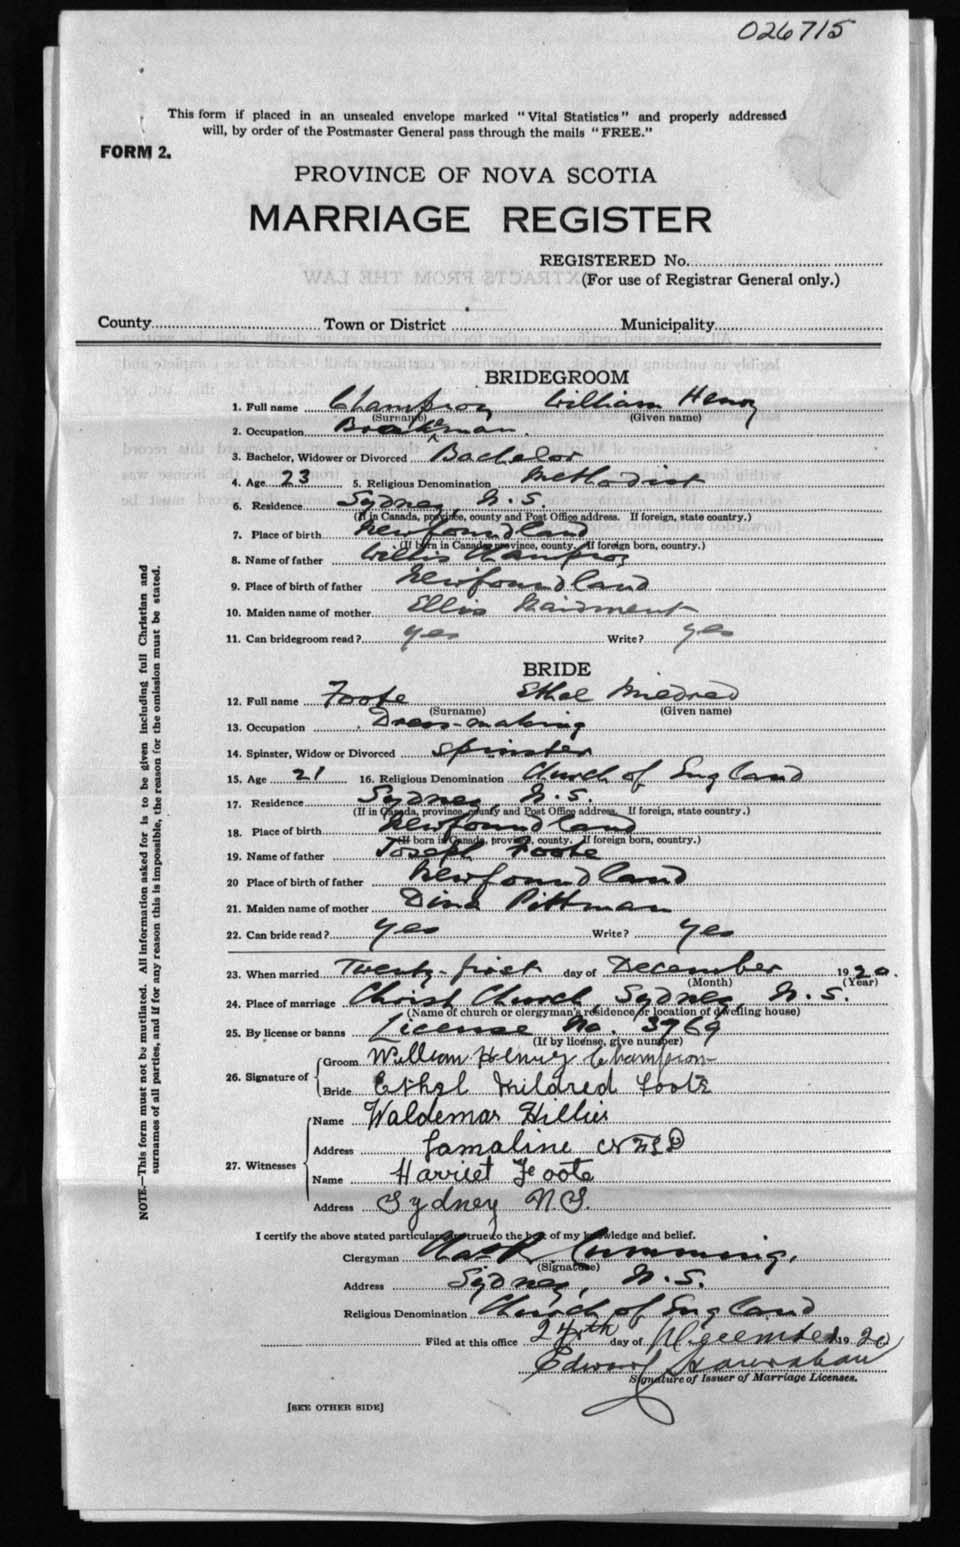 026715
This form if placed in an unsealed envelope marked "Vital Statistics" and properly addressed
will, by order of the Postmaster General pass through the mails "FREE."
FORM 2.
PROVINCE OF NOVA SCOTIA
MARRIAGE REGISTER
REGISTERED No.
(For use of Registrar General only.)
County Town or District Municipality
BRIDEGROOM
1. Full name Champion William Henry
(Surname) (Given name)
2. Occupation Brakeman.
3. Bachelor, Widower or Divorced Bachelor
4. Age 23 5. Religious Denomination Methodist
6. Residence Sydney, N.S.
(If in Canada, province, county and Post Office address. If foreign, state country.)
7. Place of birth Newfoundland
(If born in Canada, province, county. If foreign born, country.)
8. Name of father Willis Champion
9. Place of birth of father Newfoundland
10. Maiden name of mother Ellis Maidment
11. Can bridegroom read? yes Write? yes
BRIDE
12. Full name Foote Ethel Mildred
(Surname) (Given name)
13. Occupation Dress-making
14. Spinster, Widow or Divorced Spinster
15. Age 21 16. Religious Denomination Church of England
17. Residence Sydney, N.S.
(If in Canada, province, county and Post Office address. If foreign, state country.)
18. Place of birth Newfoundland
(If born in Canada, province, county. If foreign born, country.)
19. Name of father Joseph Foote
20 Place of birth of father Newfoundland
21. Maiden name of mother Dina Pittman
22. Can bride read? yes Write? yes
23. When married Twenty-first day of December 1920.
(Month) (Year)
24. Place of marriage Christ Church, Sydney, N.S.
(Name of church or clergyman's residence or location of dwelling house)
25. By license or banns License No. 3769
(If by license, give number)
26. Signature of Groom William Henry Champion
Bride Ethel Mildred Foote
27. Witnesses Name Waldemar Hillier
Address Lamaline NFLD
Name Harriet Foote
Address Sydney N.S.
I certify the above stated particulars are true to the best of my knowledge and belief.
Clergyman Cumming,
(Signature)
Address Sydney, N.S.
Religious Denomination Church of England
Filed at this office 24th day of December 1920
Edward
Signature of Issuer of Marriage Licenses.
[SEE OTHER SIDE]
NOTE.—This form must not be mutilated. All information asked for is to be given including full Christian and
surnames of all parties, and if for any reason this is impossible, the reason for the omission must be stated.